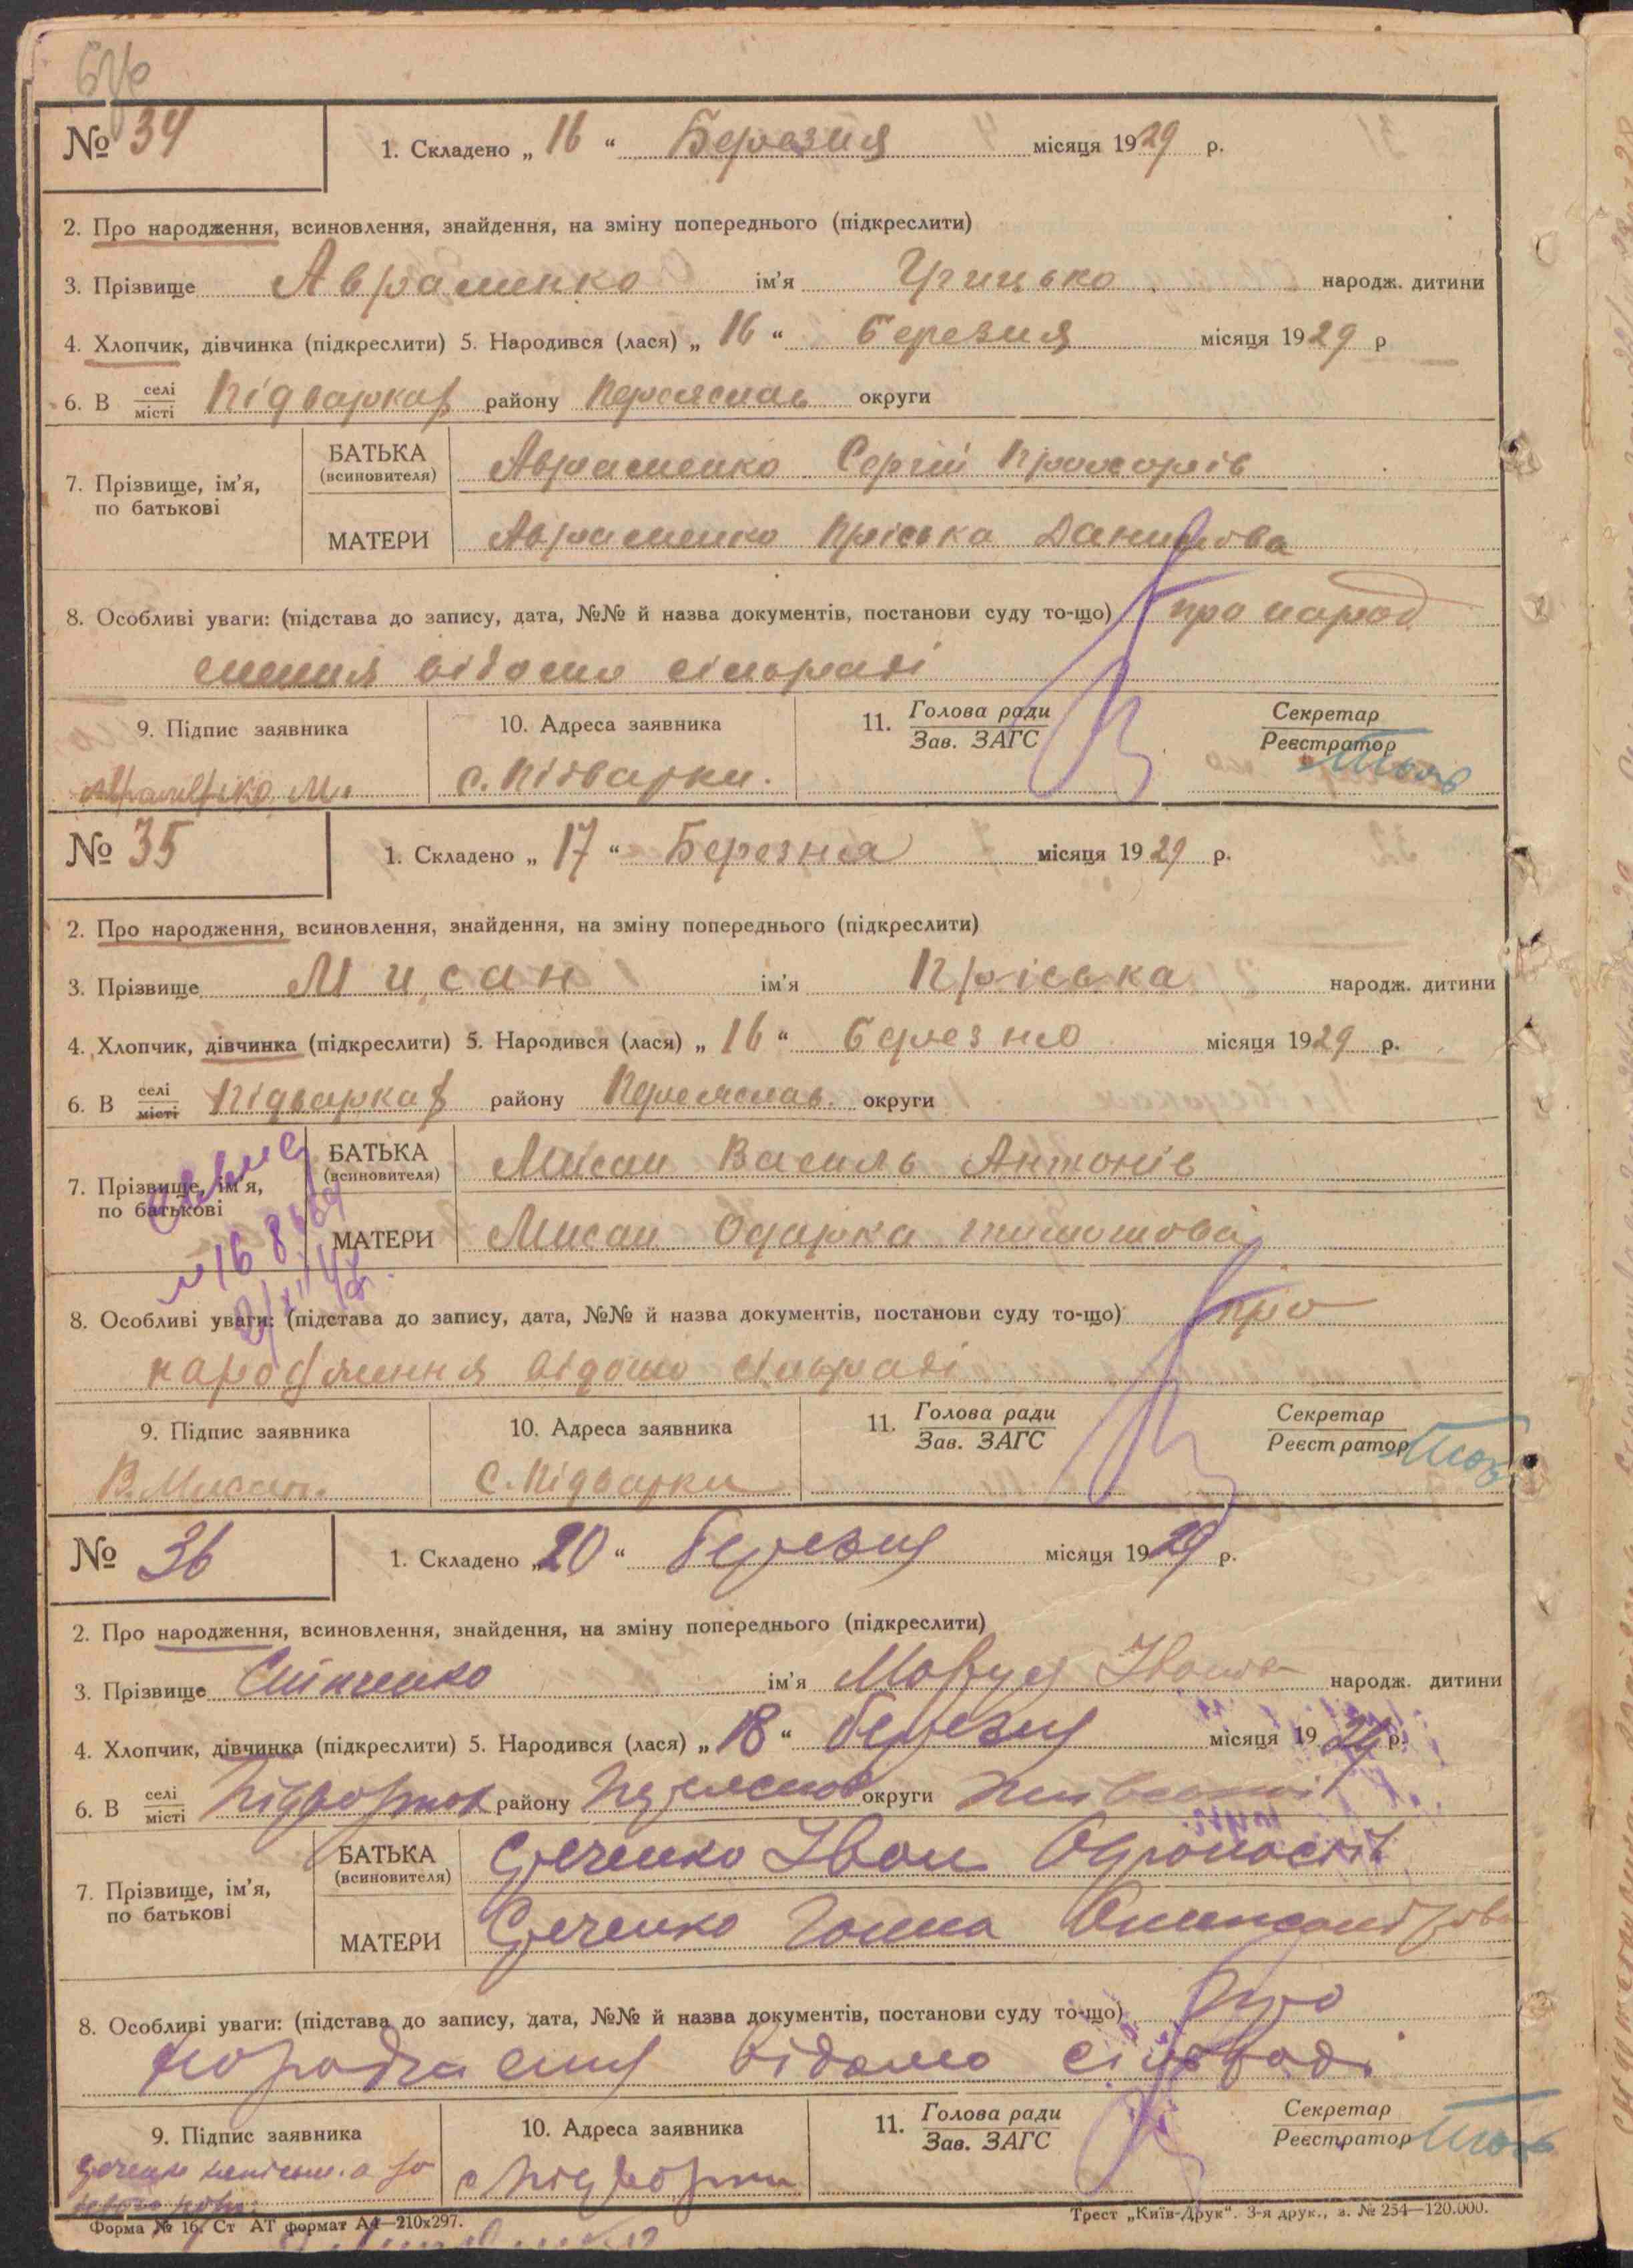 № 34
1. Складено „ 16 “ Березня місяця 1929 р.
2. Про народження, всиновлення, знайдення, на зміну попереднього (підкреслити)
3. Прізвище Авраменко ім'я Грицько народж. дитини
4. Хлопчик, дівчинка (підкреслити) 5. Народився (лася) „ 16 “ Березня місяця 1929 р
6. В селі місті Підварках району Переяслав округи
7. Прізвище, ім'я, по батькові
БАТЬКА (всиновителя) Авраменко Сергій Прохорів
МАТЕРИ Авраменко Пріська Данилова
8. Особливі уваги: (підстава до запису, дата, №№ й назва документів, постанови суду то-що) про народ
ження відомо сільраді
9. Підпис заявника
10. Адреса заявника
11. Голова ради Зав. ЗАГС
Секретар Реєстратор
с. Підварки.
№ 35
1. Складено „ 17 “ Березня місяця 1929 р.
2. Про народження, всиновлення, знайдення, на зміну попереднього (підкреслити)
3. Прізвище Мисан ім'я Пріська народж. дитини
4. Хлопчик, дівчинка (підкреслити) 5. Народився (лася) „ 16 “ Березня місяця 1929 р.
6. В селі місті Підварках району Переяслав округи
7. Прізвище, ім'я, по батькові
БАТЬКА (всиновителя) Мисан Василь Антонів
МАТЕРИ Мисан Одарка Тимошова
8. Особливі уваги: (підстава до запису, дата, №№ й назва документів, постанови суду то-що) про
народження відомо сільраді
9. Підпис заявника
10. Адреса заявника
11. Голова ради Зав. ЗАГС
Секретар Реєстратор
В. Мисан.
С. Підварки
№ 36
1. Складено „ 20 “ березня місяця 1929 р.
2. Про народження, всиновлення, знайдення, на зміну попереднього (підкреслити)
3. Прізвище ім'я Маруся народж. дитини
4. Хлопчик, дівчинка (підкреслити) 5. Народився (лася) „ 18 “ березня місяця 1929 р.
6. В селі місті Підварках району Переяслав округи
7. Прізвище, ім'я, по батькові
БАТЬКА (всиновителя) Іван
МАТЕРИ Ганна Олександрова
8. Особливі уваги: (підстава до запису, дата, №№ й назва документів, постанови суду то-що) Про
народження відомо сільраді
9. Підпис заявника
10. Адреса заявника
11. Голова ради Зав. ЗАГС
Секретар Реєстратор
с Підварки
Форма № 16. Ст АТ формат А4—210x297.
Трест „Київ-Друк“. 3-я друк., з. № 254—120.000.